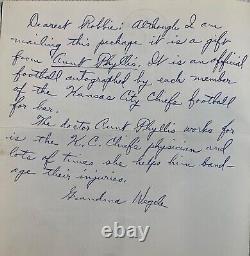 Dearest Robbie: Although I am
mailing this package it is a gift
from Aunt Phyllis. It is an official
football autographed by each member
of the Kansas City Chiefs football
for her.
The doctor Aunt Phyllis works for
is the K.C. Chiefs physician and
lots of times she helps him band-
age their injuries.
Grandma